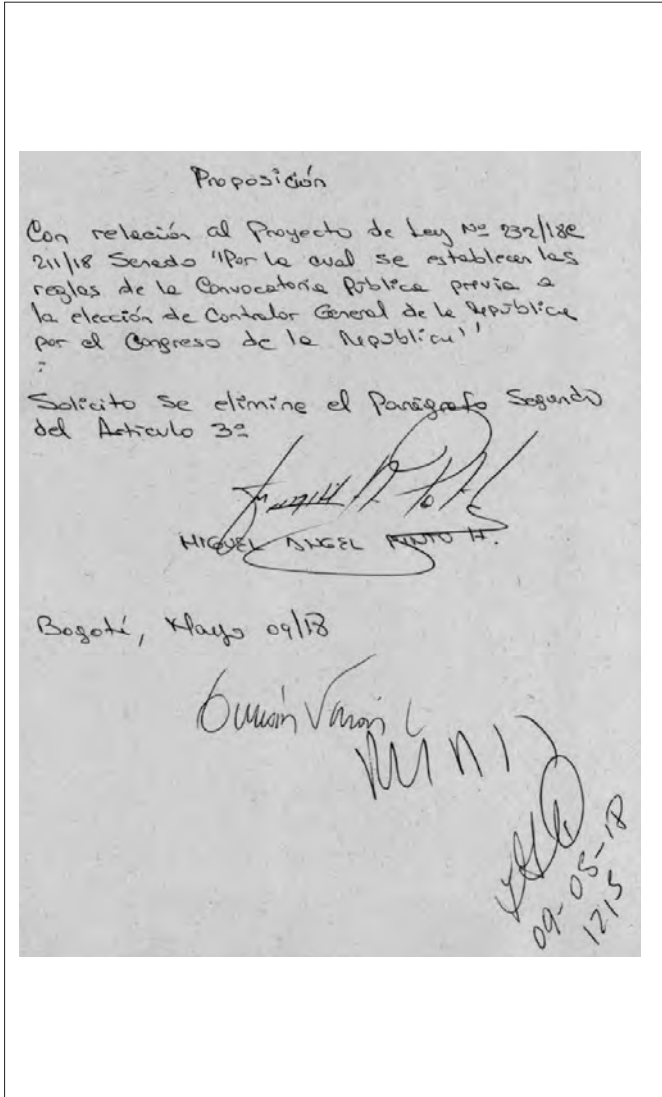 Proposición
Con relación al Proyecto de Ley Nº 232/18C
211/18 Senado "Por la cual se establecen las
reglas de la Convocatoria Pública previa a
la elección de Contralor General de la República
por el Congreso de la República"
:
Solicito se elimine el Parágrafo Segundo
del Artículo 3º
MIGUEL ANGEL PINTO H.
Bogotá, Mayo 09/18
Germán Varón C
09-05-18
1215